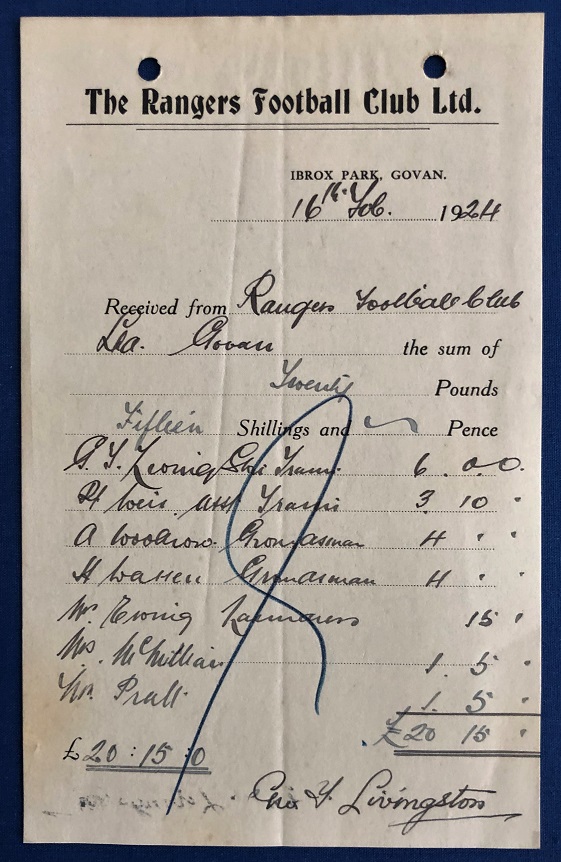 The Rangers Football Club Ltd.
IBROX PARK, GOVAN.
16th Feb. 1924
Received from Rangers Football Club
Ltd. Govan the sum of
Twenty Pounds
Fifteen Shillings and ~ Pence
Livingston Trainr 6. 0. 0.
Asst Trainr 3. 10 "
A Woodrow. Groundsman 4 " "
Groundsman 4 " "
Mrs. Ewing Laundress 15 "
Mrs. McMillan 1. 5 "
Pratt 1. 5 "
£20 15 "
£20:15:0
Geo T. Livingston